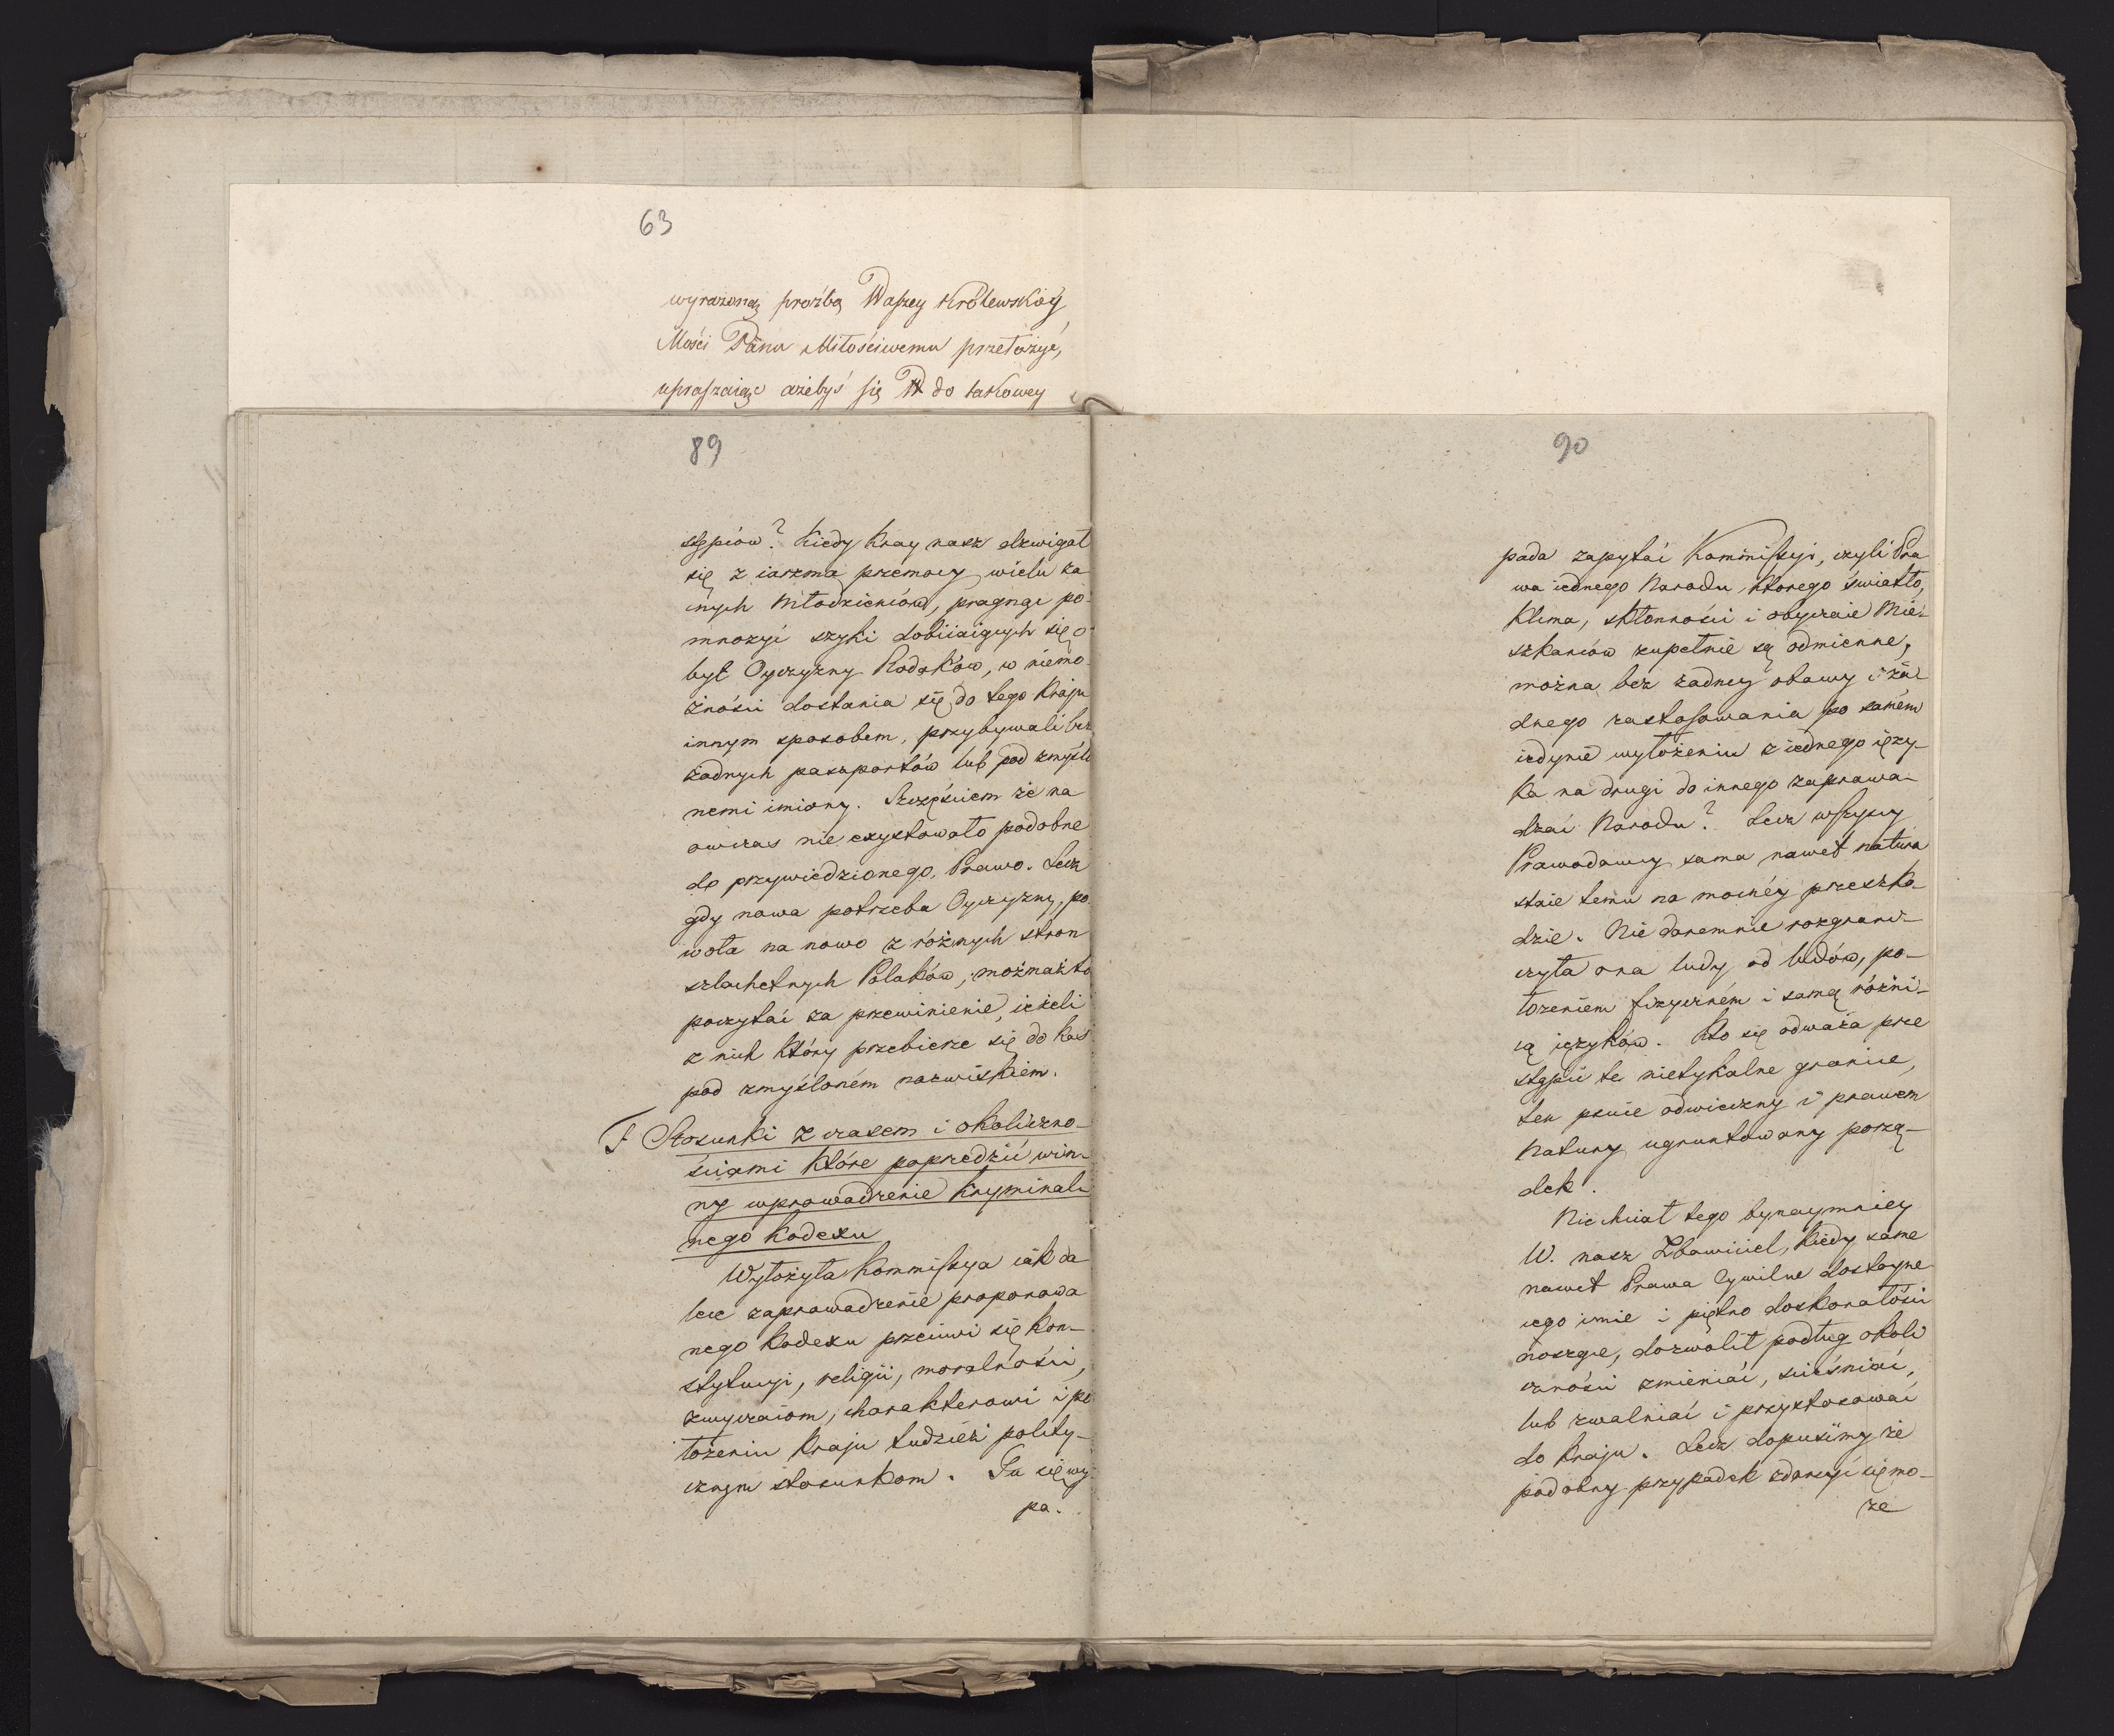 63
wyrażoną prozbą Waszey Królewskiéy
Mości Panu Miłościwemu przełożyć,
upraszaiąc ażebyś się W do takowey
89
stępców? Kiedy Kray nasz dzwigał
się z iarzma przemocy wielu za
cnych Młodzieńców, pragnąc po-
mnożyć szyki dobiiaiących się o
byt Oyczyzny Rodaków, w niemo-
żności dostania się do tego Kraju
innym sposobem, przybywali bez
żadnych paszportów lub pod zmyślo
nemi imiony. Szczęściem że na
owczas nie exystowało podobne
do przywiedzionego, Prawo. Lecz
gdy nowa potrzeba Oyczyzny, po
woła na nowo z różnych stron
szlachetnych Polaków, możnaż to
poczytać za przewinienie, jeżeli
z nich który przebierze się do Nas
pod zmyśloném nazwiskiem.
F Stosunki z czasem i okoliczno-
ściami które poprzedzić win-
ny wprowadzenie Kryminal-
nego Kodexu
Wyłożyła Kommissya iak da
lece zaprowadzenie proponowa
nego Kodexu przeciwi się Kon-
stytucyi, religii, moralności,
zwyczaiom, charakterowi i po
łożeniu Kraju tudzież polity-
cznym stosunkom. Tu się wy
pa.
90
pada zapytać Kommissyi, czyli Pra
wa iednego Narodu, którego światło,
Klima, skłonności i obyczaie Mie-
szkańców zupełnie są odmienne,
można bez żadney obawy i ża-
dnego zastosowania po samém
iedynie wyłożeniu z iednego ięzy-
ka na drugi do innego zaprowa-
dzać Narodu? Lecz wszyscy
Prawodawcy sama nawet natura
staie temu na mocnéy przeszko-
dzie. Nie daremnie rozgrani-
czyła ona ludy od ludów, po-
łożeniem fizyczném i samą różni-
cą ięzyków. Kto się odważa prze
stąpić te nietykalne granice,
ten psuie odwieczny i prawem
Natury ugruntowany porzą-
dek.
Nie chciał tego bynaymniey
W. nasz Zbawiciel, kiedy same
nawet Prawa Cywilne dostoyne
iego imie i piętno doskonałości
noszące, dozwolił podług okoli
czności zmieniać, ścieśniać,
lub zwalniać i przystosować
do Kraju. Lecz dopuśćmy że
podobny przypadek zdarzyć się mo-
że